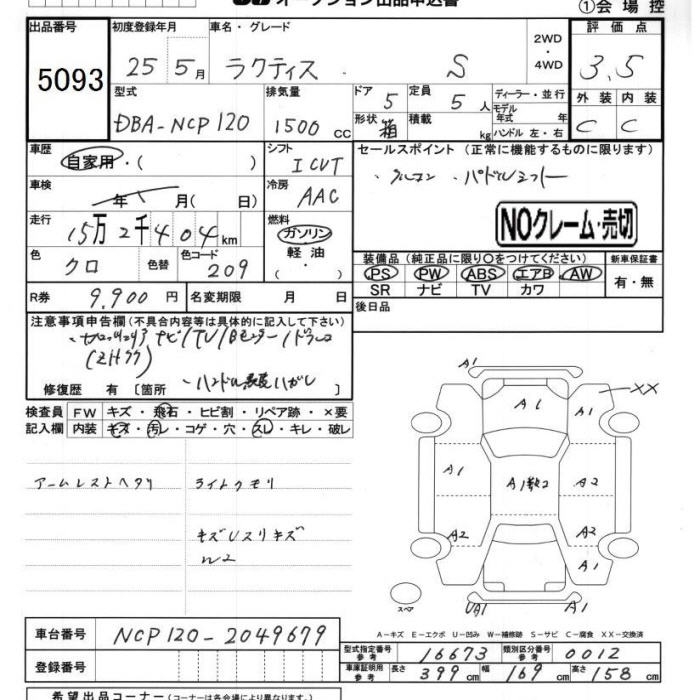 オークション出品申込書
①会場控
出品番号 初度登録年月 車名・グレード 2WD ・ 4WD 評価点
5093 25 5月 ラクティス S 3.5
型式 排気量 ドア 5 定員 5 人 ディーラー・並行 外装 内装
DBA-NCP120 1500 CC 形状 箱 積載 kg モデル年式 年 ハンドル 左・右 C C
車歴 自家用・( ) シフト ICVT セールスポイント (正常に機能するものに限ります)
車検 年 月( 日) 冷房 AAC パドルシフト
NOクレーム・売切
走行 15万2千404km 燃料 ガソリン 軽油 ( ・ )
色 クロ 色替 色コード 209
装備品(純正品に限り○をつけてください) 新車保証書
PS PW ABS エアB AW 有・無
SR ナビ TV カワ
R券 9,900円 名変期限 月 日 後日品
注意事項申告欄(不具合内容等は具体的に記入して下さい)
修復歴 有 [箇所 ]
検査員 FW キズ・飛石・ヒビ割・リペア跡・×要
記入欄 内装 キズ・汚レ・コゲ・穴・スレ・キレ・破レ
アームレストヘタリ ライトクモリ
キズUスリキズ
W2
A1
XX
A1 A1
A1 A2
A2 A2
A1
スペア UA1 A1
A-キズ E-エクボ U-凹み W-補修跡 S-サビ C-腐食 XX-交換済
車台番号 NCP120-2049679
型式指定番号 参考 16673 類別区分番号 参考 0012
登録番号
車庫証明用 参考 長さ 399cm 幅 169cm 高さ 158cm
希望出品コーナー(コーナーは各会場により異なります。)